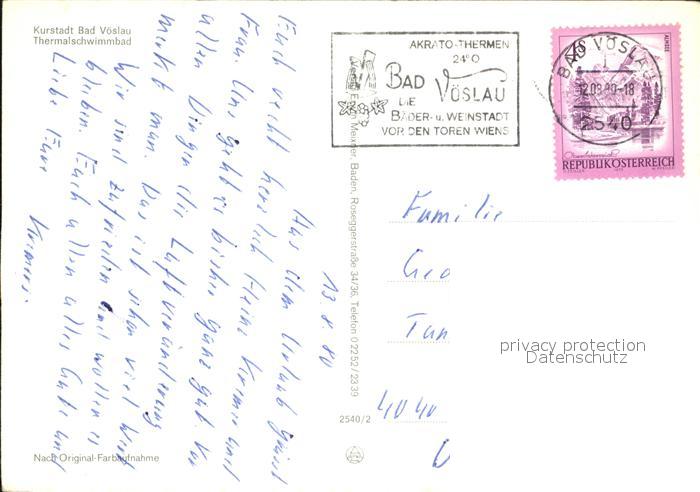 Kurstadt Bad Vöslau
Thermalschwimmbad
AKRATO-THERMEN
24°
BAD VÖSLAU
DIE
BÄDER- u. WEINSTADT
VOR DEN TOREN WIENS
BAD VÖSLAU
12.08.80-18
2540
ALMSEE
REPUBLIK ÖSTERREICH
13.8.80
Aus dem Urlaub grüsst
Euch recht herzlich Heinz Kremer und
Frau. Uns geht es bisher ganz gut. Vor
allen Dingen die Luftveränderung
merkt man. Das ist schon viel wert
Wir sind zufrieden und wollen es
bleiben. Euch allen alles Gute und
Liebe Eure
Kremers.
Familie
Geo
4040
privacy protection
Datenschutz
Meixner, Baden, Roseggerstraße 34/36, Telefon 02252/2339
2540/2
Nach Original-Farbaufnahme